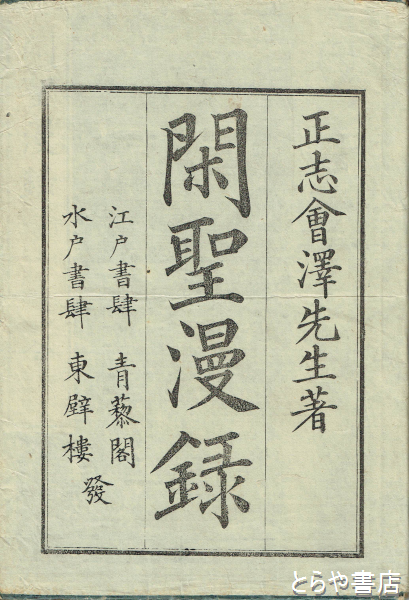 正志會澤先生著
閑聖漫録
江户書肆 青藜閣
水户書肆 東壁樓
發
とらや書店